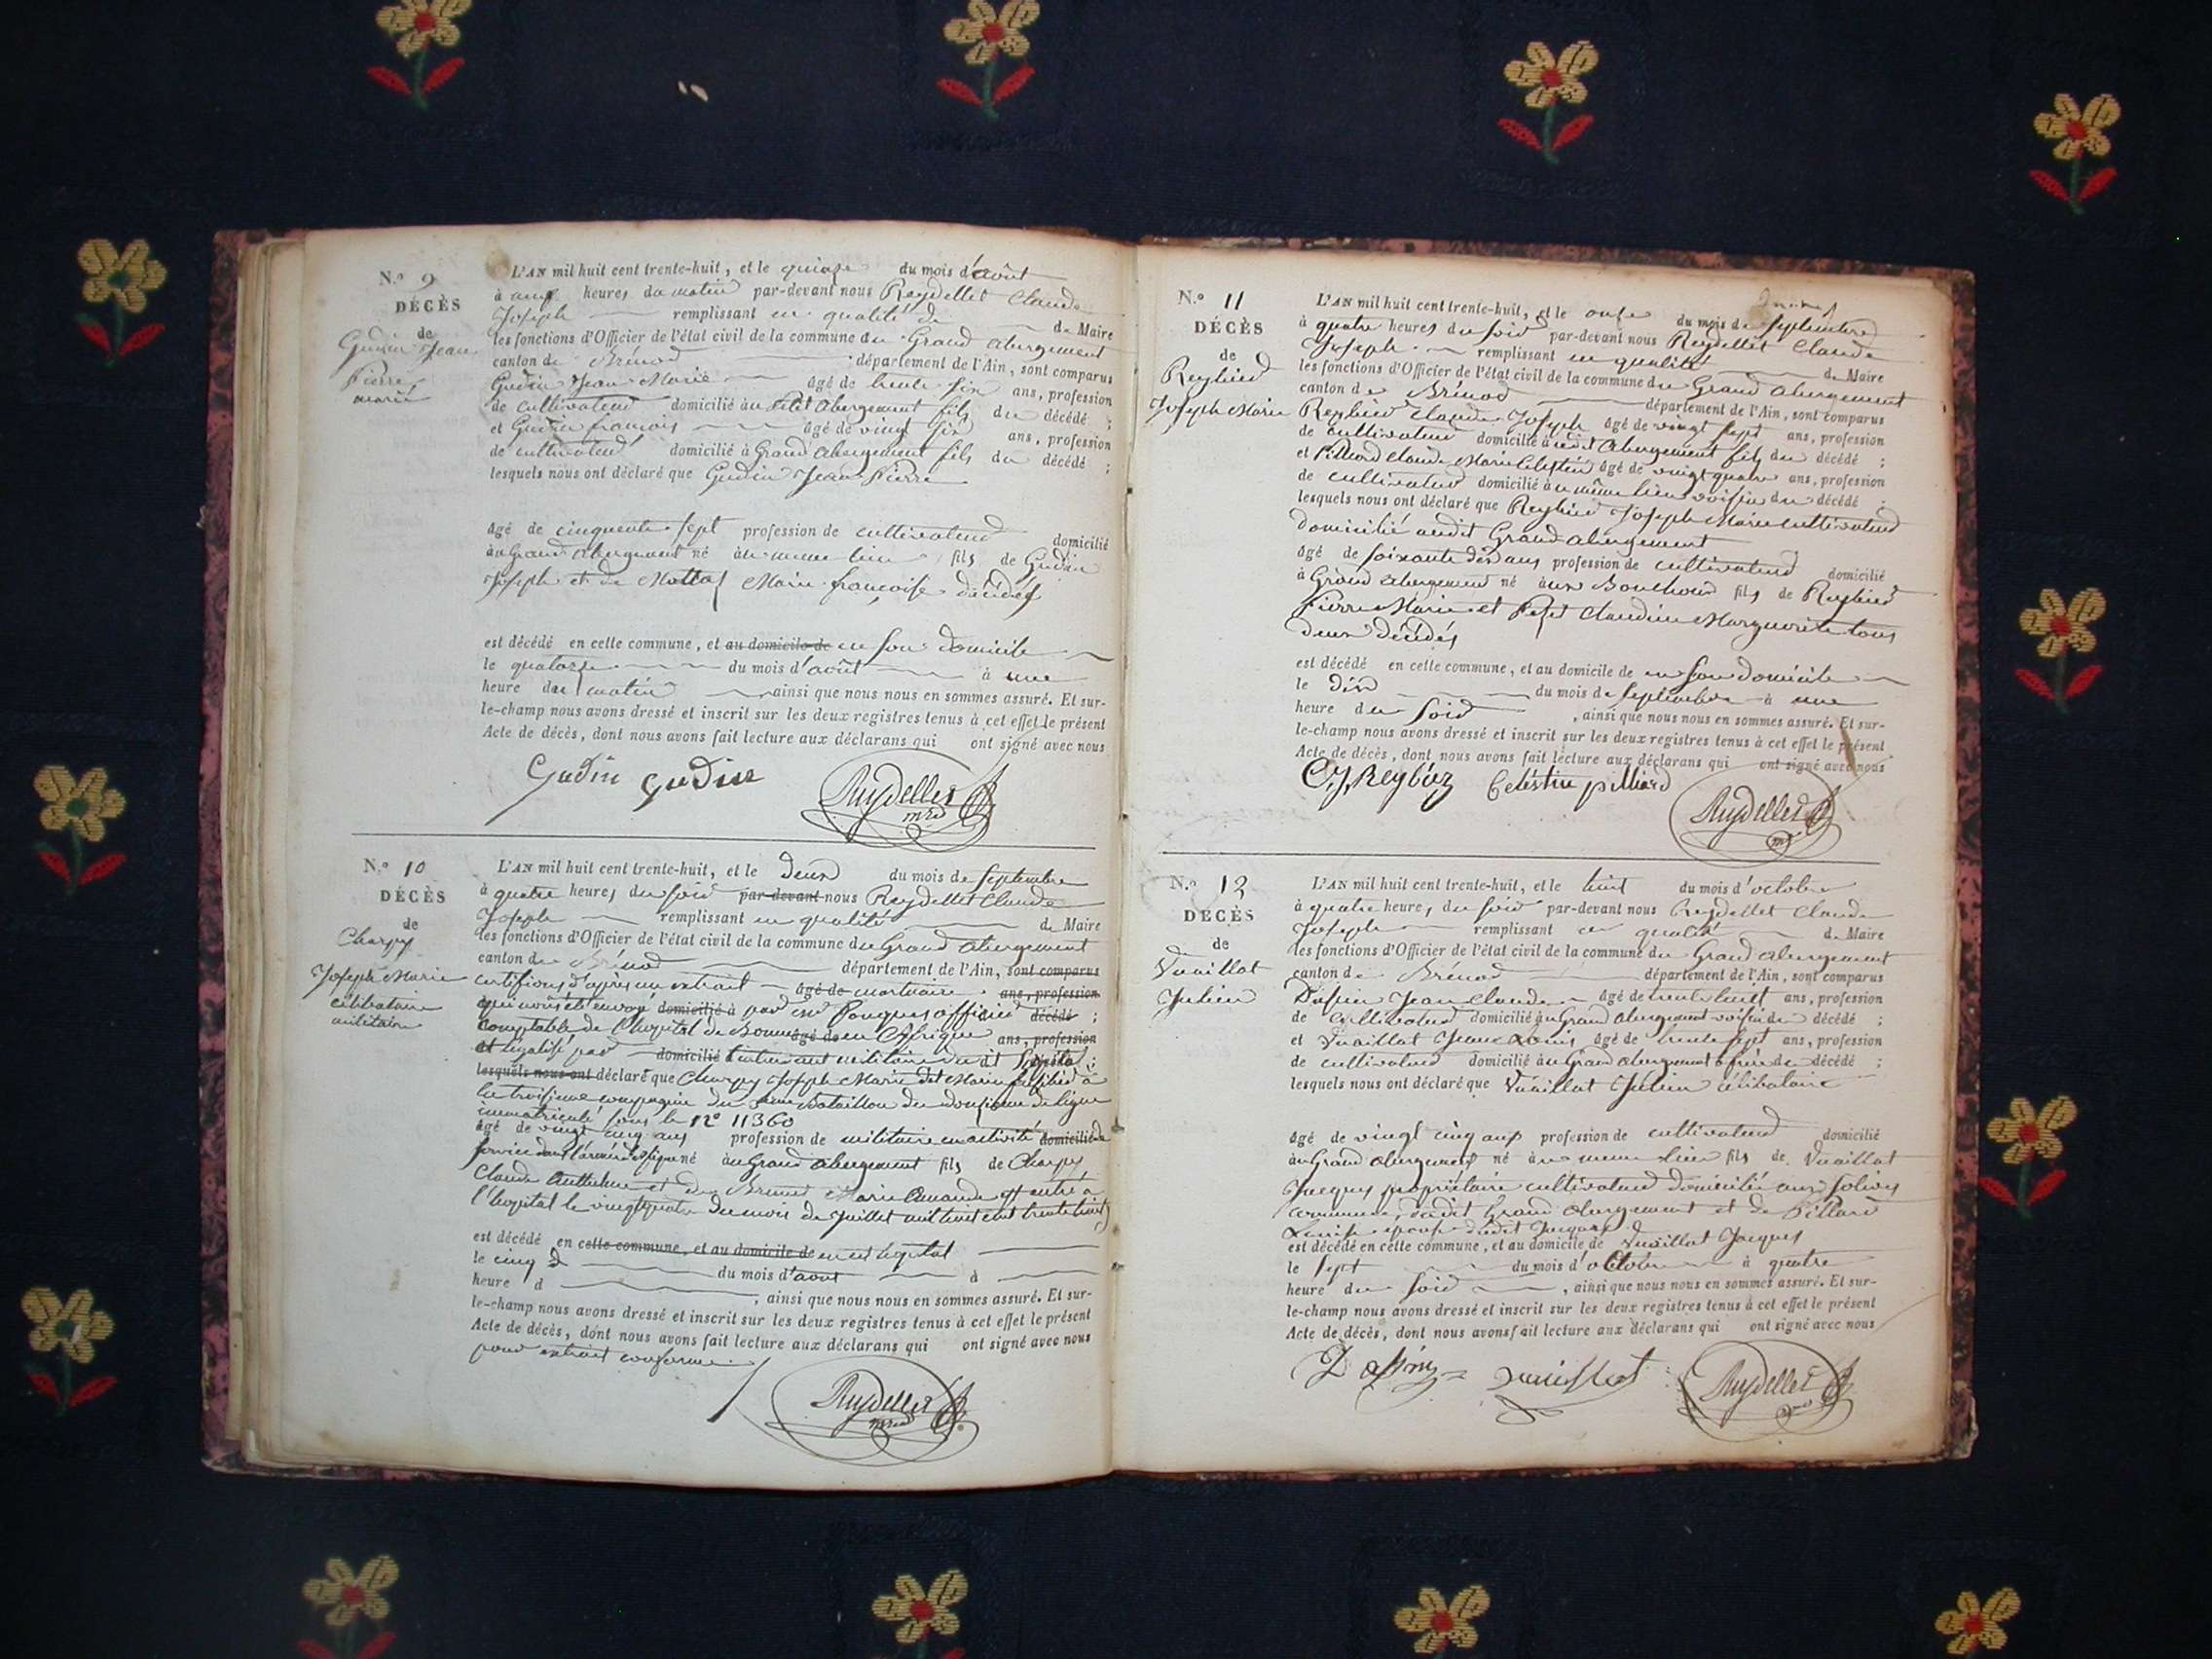 N.º 9
DÉCÈS
de
Gudin Jean
Pierre,
marié
L'AN mil huit cent trente-huit, et le quinze du mois d'août
à neuf heures du matin par-devant nous Reydellet Claude
Joseph remplissant en qualité de de Maire
les fonctions d'Officier de l'état civil de la commune du Grand abergement
canton de Brénod département de l'Ain, sont comparus
Gudin Jean Marie âgé de trente six ans, profession
de cultivateur domicilié au Petit abergement fils du décédé ;
et Gudin françois âgé de vingt six ans, profession
de cultivateur domicilié à Grand abergement fils du décédé ;
lesquels nous ont déclaré que Gudin Jean Pierre
âgé de cinquante sept profession de cultivateur domicilié
au Grand abergement né au même lieu fils de Gudin
Joseph et de Mottas Marie françoise décédés
est décédé en cette commune, et au domicile de en son domicile
le quatorze du mois d'août à une
heure du matin ainsi que nous nous en sommes assuré. Et sur-
le-champ nous avons dressé et inscrit sur les deux registres tenus à cet effet le présent
Acte de décès, dont nous avons fait lecture aux déclarans qui ont signé avec nous
Gudin Gudin Reydellet
N.º 10
DÉCÈS
de
Charpy
Joseph Marie
célibataire
militaire
L'AN mil huit cent trente-huit, et le deux du mois de septembre
à quatre heures du soir par-devant nous Reydellet Claude
Joseph remplissant en qualité de Maire
les fonctions d'Officier de l'état civil de la commune du Grand abergement
canton de Brénod département de l'Ain, sont comparus
certifions d'après un extrait âgé de mortuaire ans, profession
qui nous est envoyé domicilié à par Mr officier décédé ;
comptable de l'hopital de Bonne âgé de en Afrique ans, profession
et légalisé par domicilié l'intendant militaire dudit
lesquels nous ont déclaré que Charpy Joseph Marie dit Marie fusilier à
la troisième compagnie du bataillon du de ligne
immatriculé sous le Nº 11360
âgé de vingt cinq ans profession de militaire en activité domicilié de
service dans l'armée d'afrique né au Grand abergement fils de Charpy
Claude Anthelme et de Brunet Marie Amande est entré à
l'hopital le vingt quatre du mois de Juillet mil huit cent trente huit
est décédé en cette commune, et au domicile de en cet hopital
le cinq du mois d'aout à
heure d , ainsi que nous nous en sommes assuré. Et sur-
le-champ nous avons dressé et inscrit sur les deux registres tenus à cet effet le présent
Acte de décès, dont nous avons fait lecture aux déclarans qui ont signé avec nous
pour extrait conforme
Reydellet
N.º 11
DÉCÈS
de
Reybier
Joseph Marie
L'AN mil huit cent trente-huit, et le onze du mois de septembre
à quatre heures du soir par-devant nous Reydellet Claude
Joseph remplissant en qualité de Maire
les fonctions d'Officier de l'état civil de la commune du Grand abergement
canton de Brénod département de l'Ain, sont comparus
Reybier Claude Joseph âgé de vingt sept ans, profession
de cultivateur domicilié audit abergement fils du décédé ;
et Pilliard Claude Marie Célestin âgé de vingt quatre ans, profession
de cultivateur domicilié au même lieu voisin du décédé ;
lesquels nous ont déclaré que Reybier Joseph Marie cultivateur
domicilié audit Grand abergement
âgé de soixante dix ans profession de cultivateur domicilié
à Grand abergement né aux Bouchoux fils de Reybier
Pierre Marie et Claudine Marguerite tous
deux décédés
est décédé en cette commune, et au domicile de en son domicile
le dix du mois de septembre à une
heure du soir , ainsi que nous nous en sommes assuré. Et sur-
le-champ nous avons dressé et inscrit sur les deux registres tenus à cet effet le présent
Acte de décès, dont nous avons fait lecture aux déclarans qui ont signé avec nous
C.J. Reybier Celéstin pilliard Reydellet
N.º 12
DÉCÈS
de
Vuaillat
Julien
L'AN mil huit cent trente-huit, et le huit du mois d'octobre
à quatre heures du soir par-devant nous Reydellet Claude
Joseph remplissant en qualité de Maire
les fonctions d'Officier de l'état civil de la commune du Grand abergement
canton de Brénod département de l'Ain, sont comparus
Jean Claude âgé de trente huit ans, profession
de cultivateur domicilié au Grand abergement voisin du décédé ;
et Vuaillat Jean Louis âgé de trente sept ans, profession
de cultivateur domicilié au Grand abergement frère du décédé ;
lesquels nous ont déclaré que Vuaillat Julien célibataire
âgé de vingt cinq ans profession de cultivateur domicilié
au Grand abergement né au même lieu fils de Vuaillat
Jacques propriétaire cultivateur domicilié aux Solives
commune dudit Grand abergement et de Pilliard
Louise épouse dudit Jacques
est décédé en cette commune, et au domicile de Vuaillat Jacques
le sept du mois d'octobre à quatre
heure du soir , ainsi que nous nous en sommes assuré. Et sur-
le-champ nous avons dressé et inscrit sur les deux registres tenus à cet effet le présent
Acte de décès, dont nous avons fait lecture aux déclarans qui ont signé avec nous
Reydellet